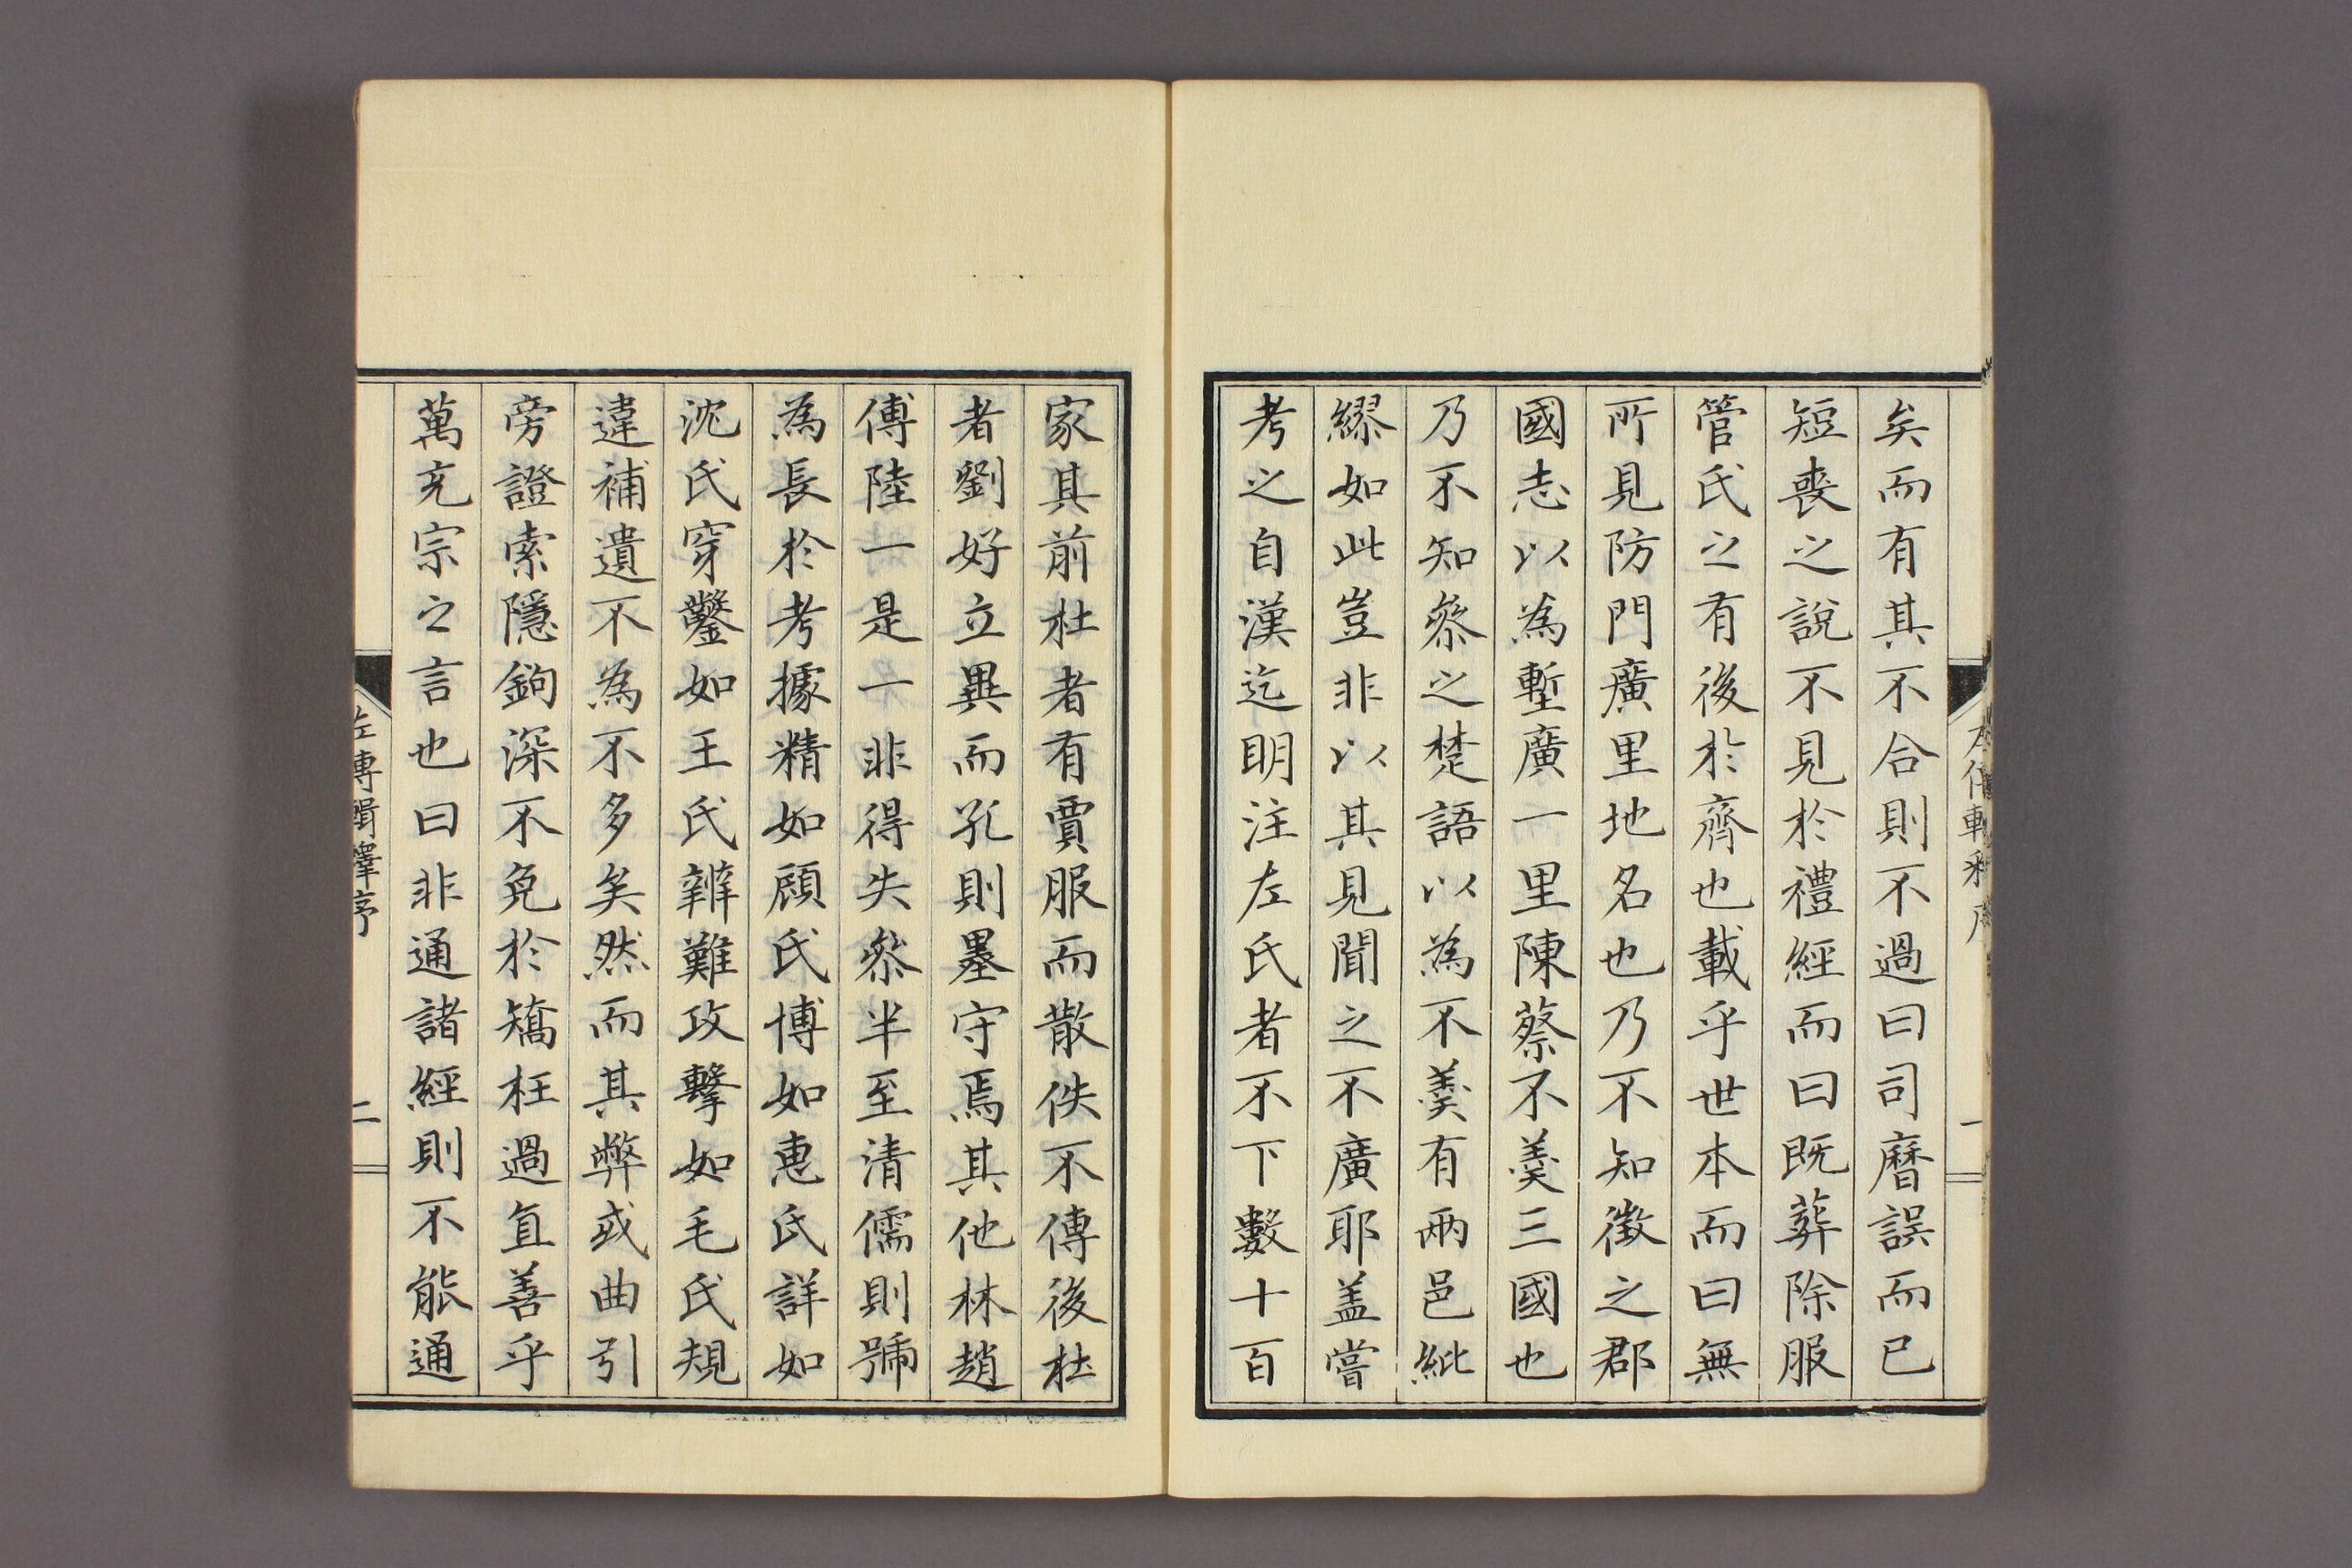 矣而有其不合則不過曰司曆誤而已
短喪之說不見於禮經而曰既葬除服
管氏之有後於齊也載乎世本而曰無
所見防門廣里地名也乃不知徵之郡
國志以為塹廣一里陳蔡不羹三國也
乃不知叅之楚語以為不羹有兩邑紕
繆如此豈非以其見聞之不廣耶盖嘗
考之自漢迄明注左氏者不下數十百
家其前杜者有賈服而散佚不傳後杜
者劉好立異而孔則墨守焉其他林趙
傅陸一是一非得失叅半至清儒則號
為長於考據精如顧氏博如惠氏詳如
沈氏穿鑿如王氏辨難攻擊如毛氏規
違補遺不為不多矣然而其弊或曲引
旁證索隱鉤深不免於矯枉過直善乎
萬充宗之言也曰非通諸經則不能通
左傳輯釋序
二